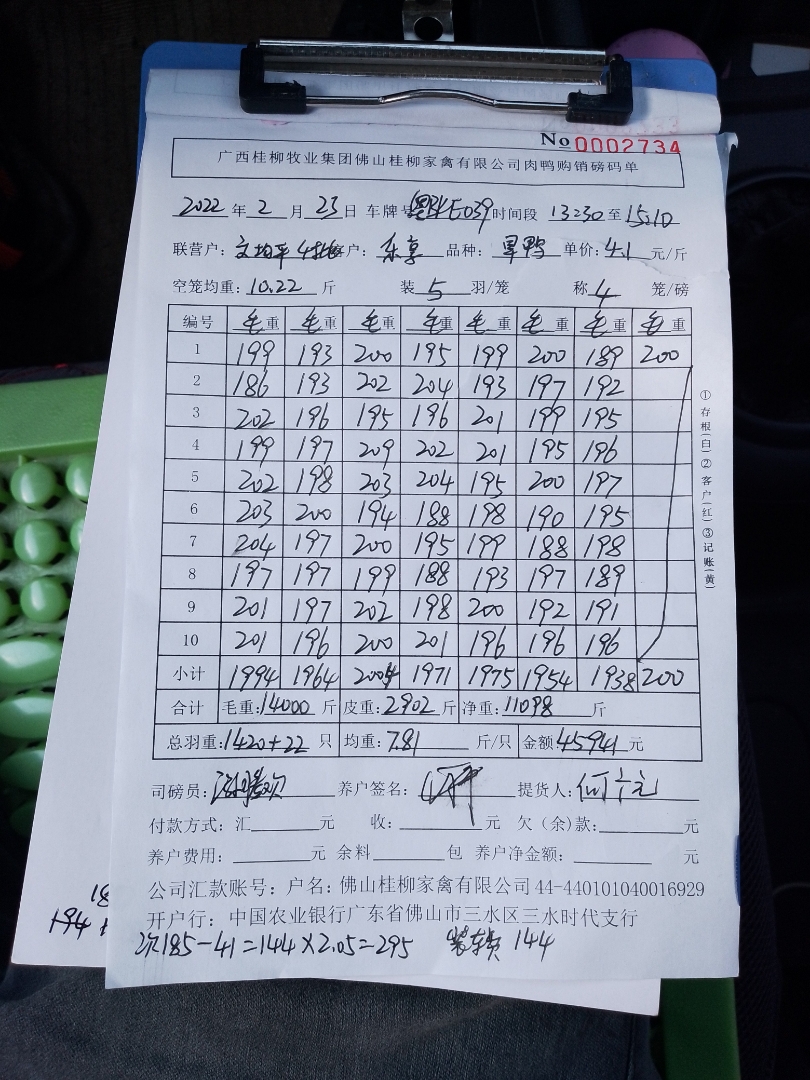 No 0002734
广西桂柳牧业集团佛山桂柳家禽有限公司肉鸭购销磅码单
2022 年 2 月 23 日 车牌号 E039 时间段 13:30 至 15:10
联营户: 文均平 4批 客户: 乐享 品种: 旱鸭 单价: 4.1 元/斤
空笼均重: 10.22 斤 装 5 羽/笼 称 4 笼/磅
编号 毛重 毛重 毛重 毛重 毛重 毛重 毛重 毛重
1 199 193 200 195 199 200 189 200
2 186 193 202 204 193 197 192
3 202 196 195 196 201 199 195
4 199 197 209 202 201 195 196
5 202 198 203 204 195 200 197
6 203 200 194 188 198 190 195
7 204 197 200 195 199 188 198
8 197 197 199 188 193 197 189
9 201 197 202 198 200 192 191
10 201 196 200 201 196 196 196
小计 1994 1964 2004 1971 1975 1954 1938 200
合计 毛重: 14000 斤 皮重: 2902 斤 净重: 11098 斤
总羽重: 1420+22 只 均重: 7.81 斤/只 金额: 45941 元
司磅员: 养户签名: 提货人:
付款方式: 汇 元 收: 元 欠(余)款: 元
养户费用: 元 余料 包 养户净金额: 元
公司汇款账号: 户名: 佛山桂柳家禽有限公司 44-440101040016929
开户行: 中国农业银行广东省佛山市三水区三水时代支行
次185-41=144×2.05=295 装车费 144
①存根(白)②客户(红)③记账(黄)
18
194